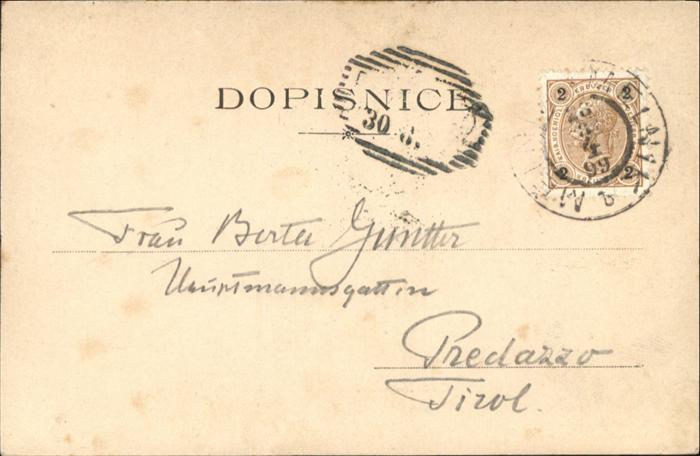 DOPISNICE
30 6.
2 2
2 2
99
Frau Berta Günther
Hauptmannsgattin
Predazzo
Tirol.